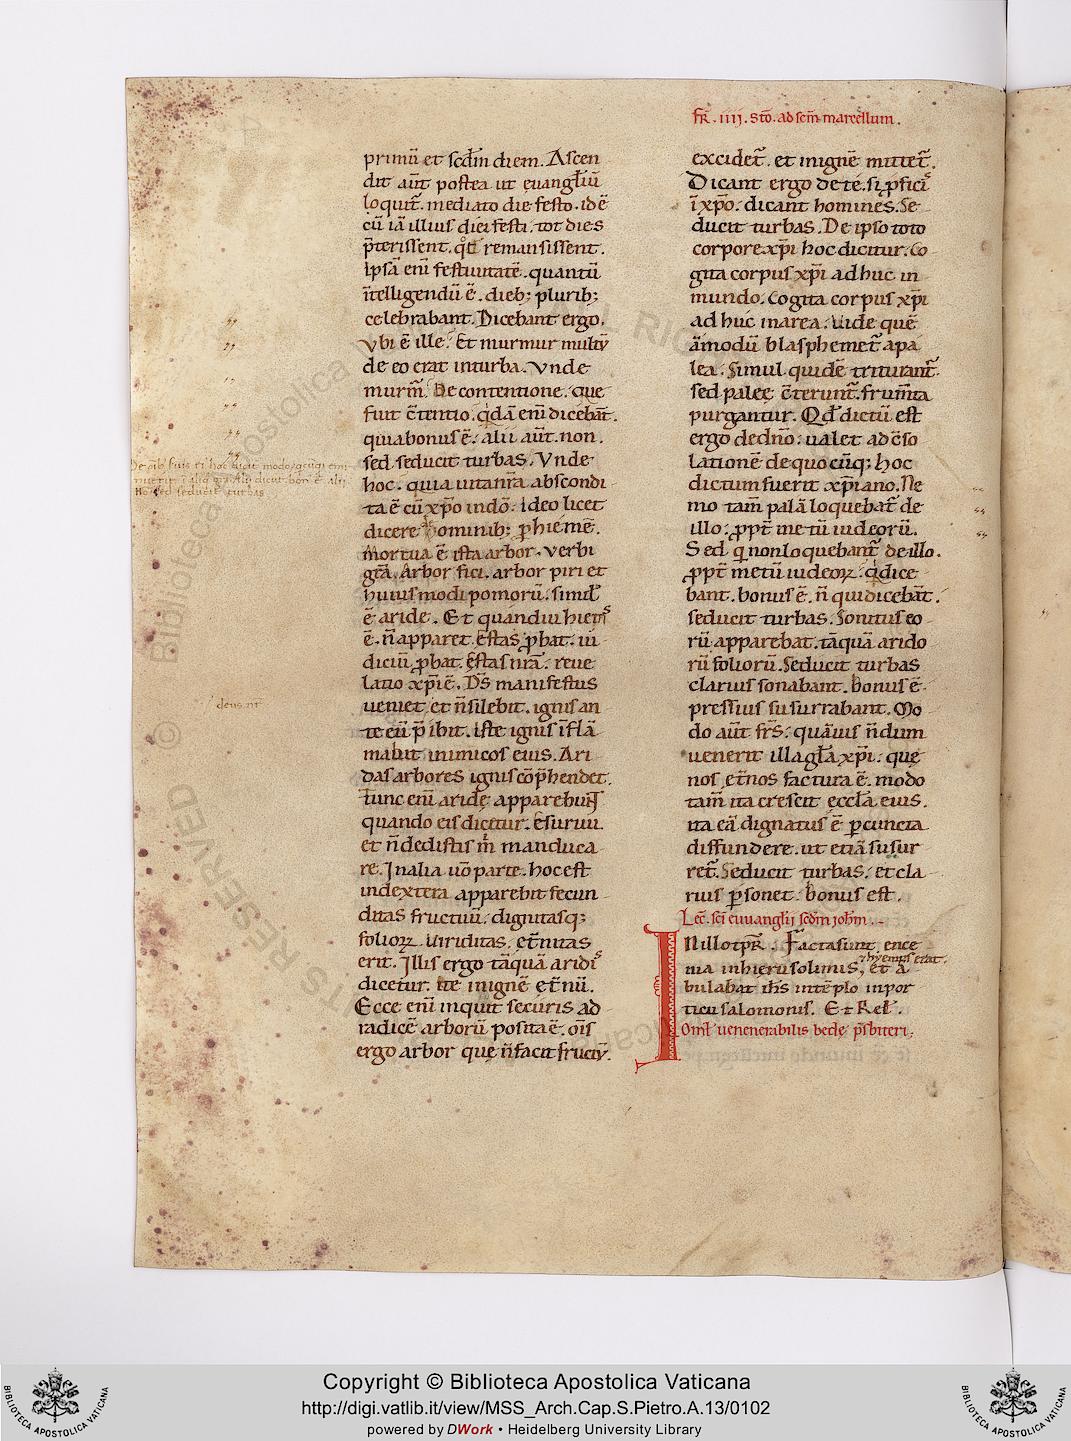 fr̄. iiii. sc̄o. ad scm̄ marcellum.
primū et scdm̄ diem. Ascen
dit aūt postea ut euangliū
loquit̄. mediato die festo. id ē
cū iā illius diei festi. tot dies
p̄terissent. qd̄ remansissent.
Ipsā enī festiuitatē. quantū
ītelligendū ē. dieb; plurib;
celebrabant. Dicebant ergo.
vbi ē ille. Et murmur multū
de eo erat inturba. vnde
murm̄. De contentione. Que
fuit c̄tentio. q̄dā enī dicebāt.
quia bonus ē. alii aūt. non.
sed seducit turbas. Vnde
hoc. quia uita nr̄a abscondi
ta ē cū xp̄o in dō. ideo licet
dicere hominib; p hiemē.
mortua ē ista arbor. verbi
gr̄a. Arbor fici. arbor piri et
huius modi pomorū. simil̄
ē aride. Et quandiu hiems
ē. n̄ apparet. ēstas ꝓbat. iu
diciū ꝓbat. ēstas nr̄a. reue
latio xp̄i ē. Dꝰ manifestus
ueniet. et n̄ silebit. ignis an
te eū p̄ibit. iste ignis īflā
mabit inimicos eius. Ari
das arbores ignis cōp̄hendet.
Tunc enī aridę apparebunt
quando eis dicetur. Esuriui.
et n̄ dedistis m̄ manduca
re. In alia uō parte. hoc est
in dextera apparebit fecun
ditas fructuū. dignitasq;
folioꝝ. uiriditas. ēt̄nitas
erit. Illis ergo tāquā aridis
dicetur. ite in ignē ēt̄nū.
Ecce enī inquit securis ad
radicē arborū posita ē. oīs
ergo arbor que n̄ facit fructū.
excidet̄. et in ignē mittet̄.
Dicant ergo de te. si p̄ficis
ī xp̄o. dicant homines. Se
ducit turbas. De ipso toto
corpore xp̄i hoc dicitur. Co
gita corpus xp̄i adhuc in
mundo. Cogita corpus xp̄i
adhuc in area. Uide quē
āmodū blasphemet̄ apa
lea. Simul quidē triturant̄.
sed paleę c̄terunt̄. frum̄ta
purgantur. Qd̄ dictū est
ergo de dn̄o. ualet ad c̄so
lationē de quo cūq; hoc
dictum fuerit xp̄iano. Ne
mo tam̄ palā loquebat̄ de
illo. ꝓpt̄ metū iudeorū.
Sed q̄ non loquebant̄ de illo.
ꝓpt̄ metū iudeoꝝ. q̄ dice
bant. bonus ē. n̄ qui dicebāt.
seducit turbas. Sonitus eo
rū apparebat. tāquā arido
rū foliorū. Seducit turbas
clarius sonabant. bonus ē.
pressius susurrabant. Mo
do aūt fr̄s. quāuis n̄dum
uenerit illa gl̄a xp̄i. quę
nos ēt̄nos factura ē. modo
tam̄ ita crescit ęccl̄a eius.
ita eā dignatus ē p cuncta
diffundere. ut etiā susur
ret̄. Seducit turbas. et cla
rius p̄sonet. bonus est.
Lec̄. sc̄i euuanglii scd̄m ioh̄m.
IN illo tp̄r. Facta sunt ence
nia in hierusolimis,
& hyemps erat.
et ā
bulabat ih̄s in tēplo in por
ticu salomonis. Et Rel̄.
Oml̄ uenenerabilis bedę p̄sbiteri.
deus nr̄
Copyright © Biblioteca Apostolica Vaticana
http://digi.vatlib.it/view/MSS_Arch.Cap.S.Pietro.A.13/0102
powered by DWork • Heidelberg University Library
BIBLIOTECA APOSTOLICA VATICANA
BIBLIOTECA APOSTOLICA VATICANA